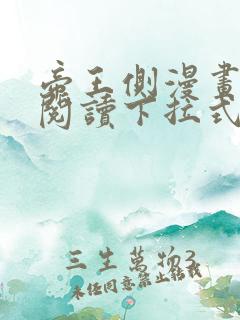 帝王側漫畫
閱讀下拉式
三生萬物3
未经同意禁止转载